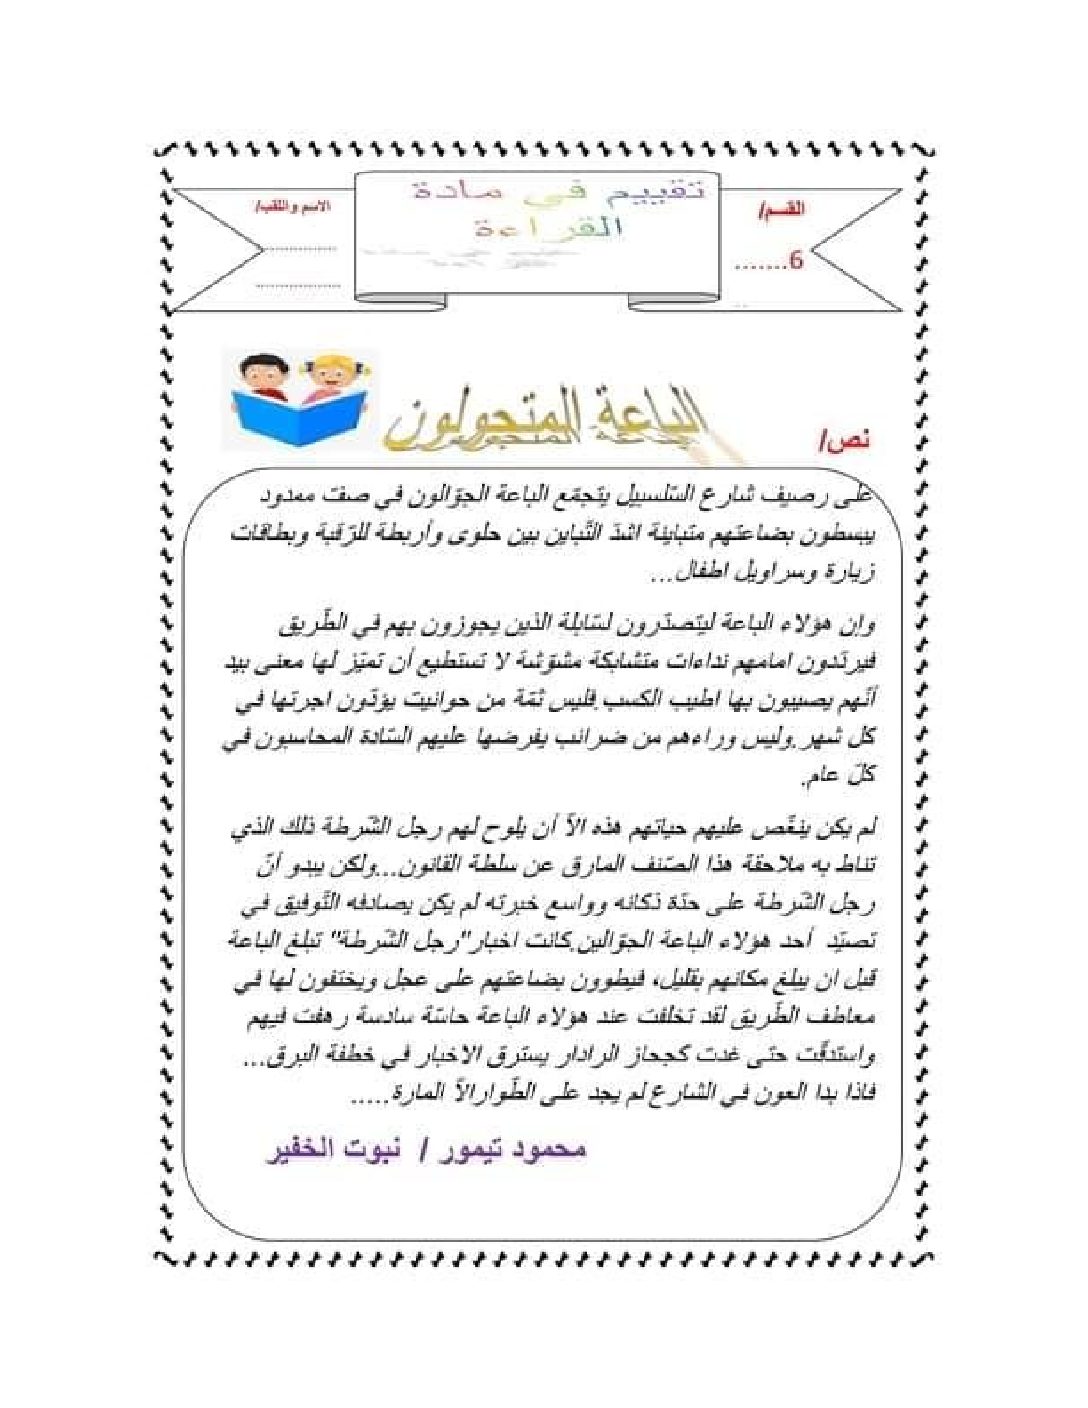 تقييم في مادة
القراءة
القسم/
6.......
الاسم واللقب/
نص/
الباعة المتجولون
على رصيف شارع السّلسبيل يتجمّع الباعة الجوّالون في صفّ ممدود
يبسطون بضاعتهم متباينة اشدّ التّباين بين حلوى وأربطة للرّقبة وبطاقات
زيارة وسراويل اطفال...
وإن هؤلاء الباعة ليتصدّرون لسّابلة الذين يجوزون بهم في الطّريق
فيرتّدون امامهم نداءات متشابكة مشوّشة لا تستطيع أن تميّز لها معنى بيد
أنّهم يصيبون بها اطيب الكسب.فليس ثمّة من حوانيت يؤدّون اجرتها في
كل شهر.وليس وراءهم من ضرائب يفرضها عليهم السّادة المحاسبون في
كلّ عام.
لم يكن ينغّص عليهم حياتهم هذه الاّ أن يلوح لهم رجل الشّرطة ذلك الذي
تناط به ملاحقة هذا الصّنف المارق عن سلطة القانون...ولكن يبدو أنّ
رجل الشّرطة على حدّة ذكائه وواسع خبرته لم يكن يصادفه التّوفيق في
تصيّد أحد هؤلاء الباعة الجوّالين.كانت اخبار"رجل الشّرطة" تبلغ الباعة
قبل ان يبلغ مكانهم بقليل، فيطوون بضاعتهم على عجل ويختفون لها في
معاطف الطّريق لقد تخلفت عند هؤلاء الباعة حاسّة سادسة رهفت فيهم
واستدقّت حتى غدت كجحاز الرادار يسترق الاخبار في خطفة البرق...
فاذا بدا العون في الشارع لم يجد على الطّوارالاّ المارة.....
محمود تيمور / نبوت الخفير